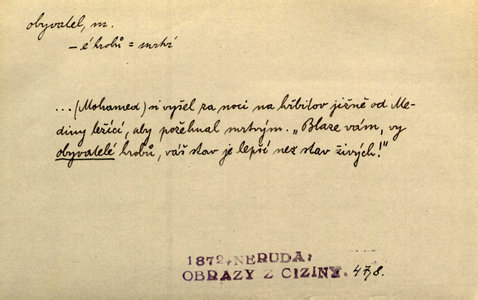 obyvatel, m.
– é hrobů = mrtví
...(Mohamed) si vyšel za noci na hřbitov jižně od Me-
diny ležící, aby požehnal mrtvým. „Blaze vám, vy
obyvatelé hrobů, váš stav je lepší než stav živých!"
1872, NERUDA,
OBRAZY Z CIZINY. 47,8.